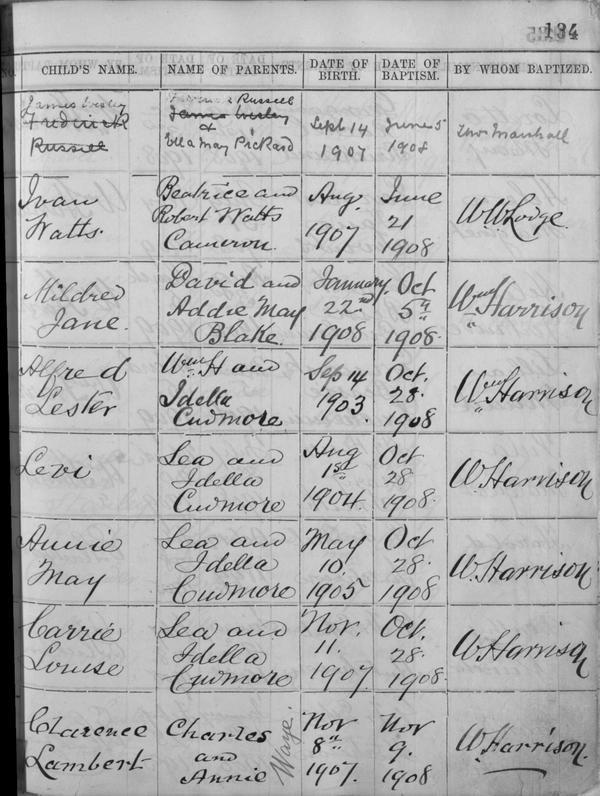 134
CHILD'S NAME. NAME OF PARENTS. DATE OF BIRTH. DATE OF BAPTISM. BY WHOM BAPTIZED.
James Wesley
Frederick
Russell
Russell
James Wesley
&
Ella May Pickard
Sept 14
1907
June 5
1908
Thos Marshall
Ivan
Watts.
Beatrice and
Robert Watts
Cameron.
Aug.
1907
June
21
1908
W W Lodge.
Mildred
Jane.
David and
Addie May
Blake.
January
22nd
1908
Oct
5th
1908.
Wm Harrison
Alfred
Lester
Wm H and
Idella
Cudmore
Sep 14
1903.
Oct.
28.
1908
Wm Harrison
Levi
Lea and
Idella
Cudmore
Aug
1st
1904.
Oct
28
1908.
W. Harrison
Annie
May
Lea and
Idella
Cudmore
May
10.
1905
Oct
28.
1908
W. Harrison
Carrie
Louise
Lea and
Idella
Cudmore
Nov.
11.
1907.
Oct.
28.
1908.
W Harrison
Clarence
Lambert
Charles
and
Annie
Waye.
Nov
8th
1907.
Nov
9.
1908
W. Harrison.